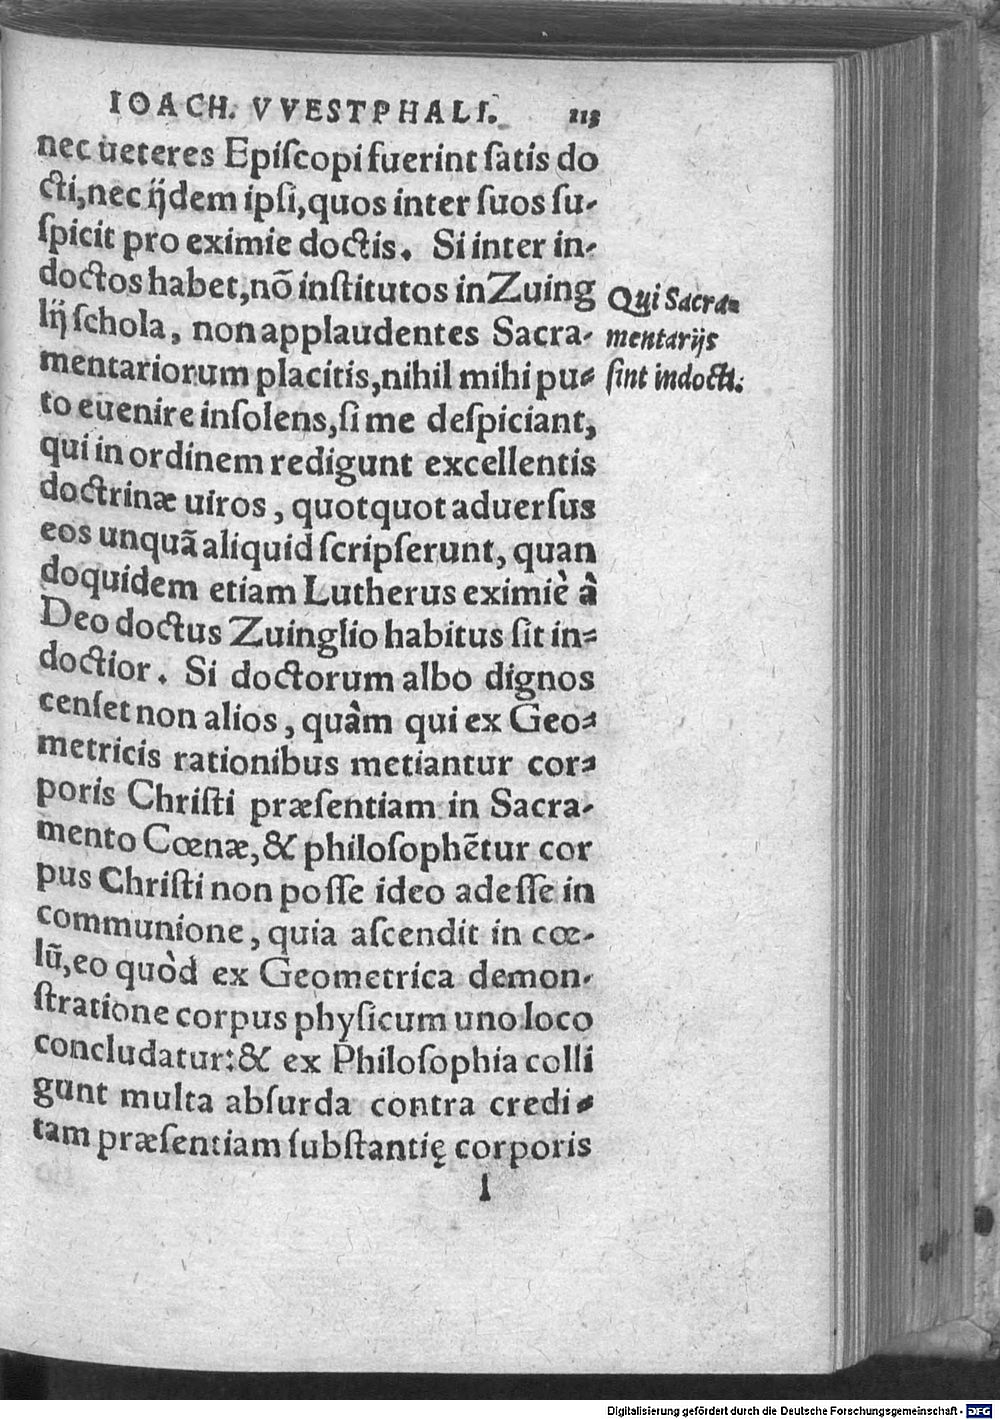 IOACH. VVESTPHALI. 113
nec ueteres Epiſcopi fuerint ſatis do
cti, nec ijdem ipſi, quos inter ſuos ſu-
ſpicit pro eximie doctis. Si inter in-
doctos habet, nō inſtitutos in Zuing
lij ſchola, non applaudentes Sacra-
mentariorum placitis, nihil mihi pu-
to euenire inſolens, ſi me deſpiciant,
qui in ordinem redigunt excellentis
doctrinæ uiros, quotquot aduerſus
eos unquā aliquid ſcripſerunt, quan
doquidem etiam Lutherus eximiè à
Deo doctus Zuinglio habitus ſit in-
doctior. Si doctorum albo dignos
cenſet non alios, quàm qui ex Geo-
metricis rationibus metiantur cor-
poris Chriſti præſentiam in Sacra-
mento Cœnæ, & philoſophētur cor
pus Chriſti non poſſe ideo adeſſe in
communione, quia aſcendit in cœ-
lū, eo quòd ex Geometrica demon-
ſtratione corpus phyſicum uno loco
concludatur: & ex Philoſophia colli
gunt multa abſurda contra credi-
tam præſentiam ſubſtantię corporis
I
Qui Sacra-
mentarijs
ſint indocti.
Digitalisierung gefördert durch die Deutsche Forschungsgemeinschaft - DFG